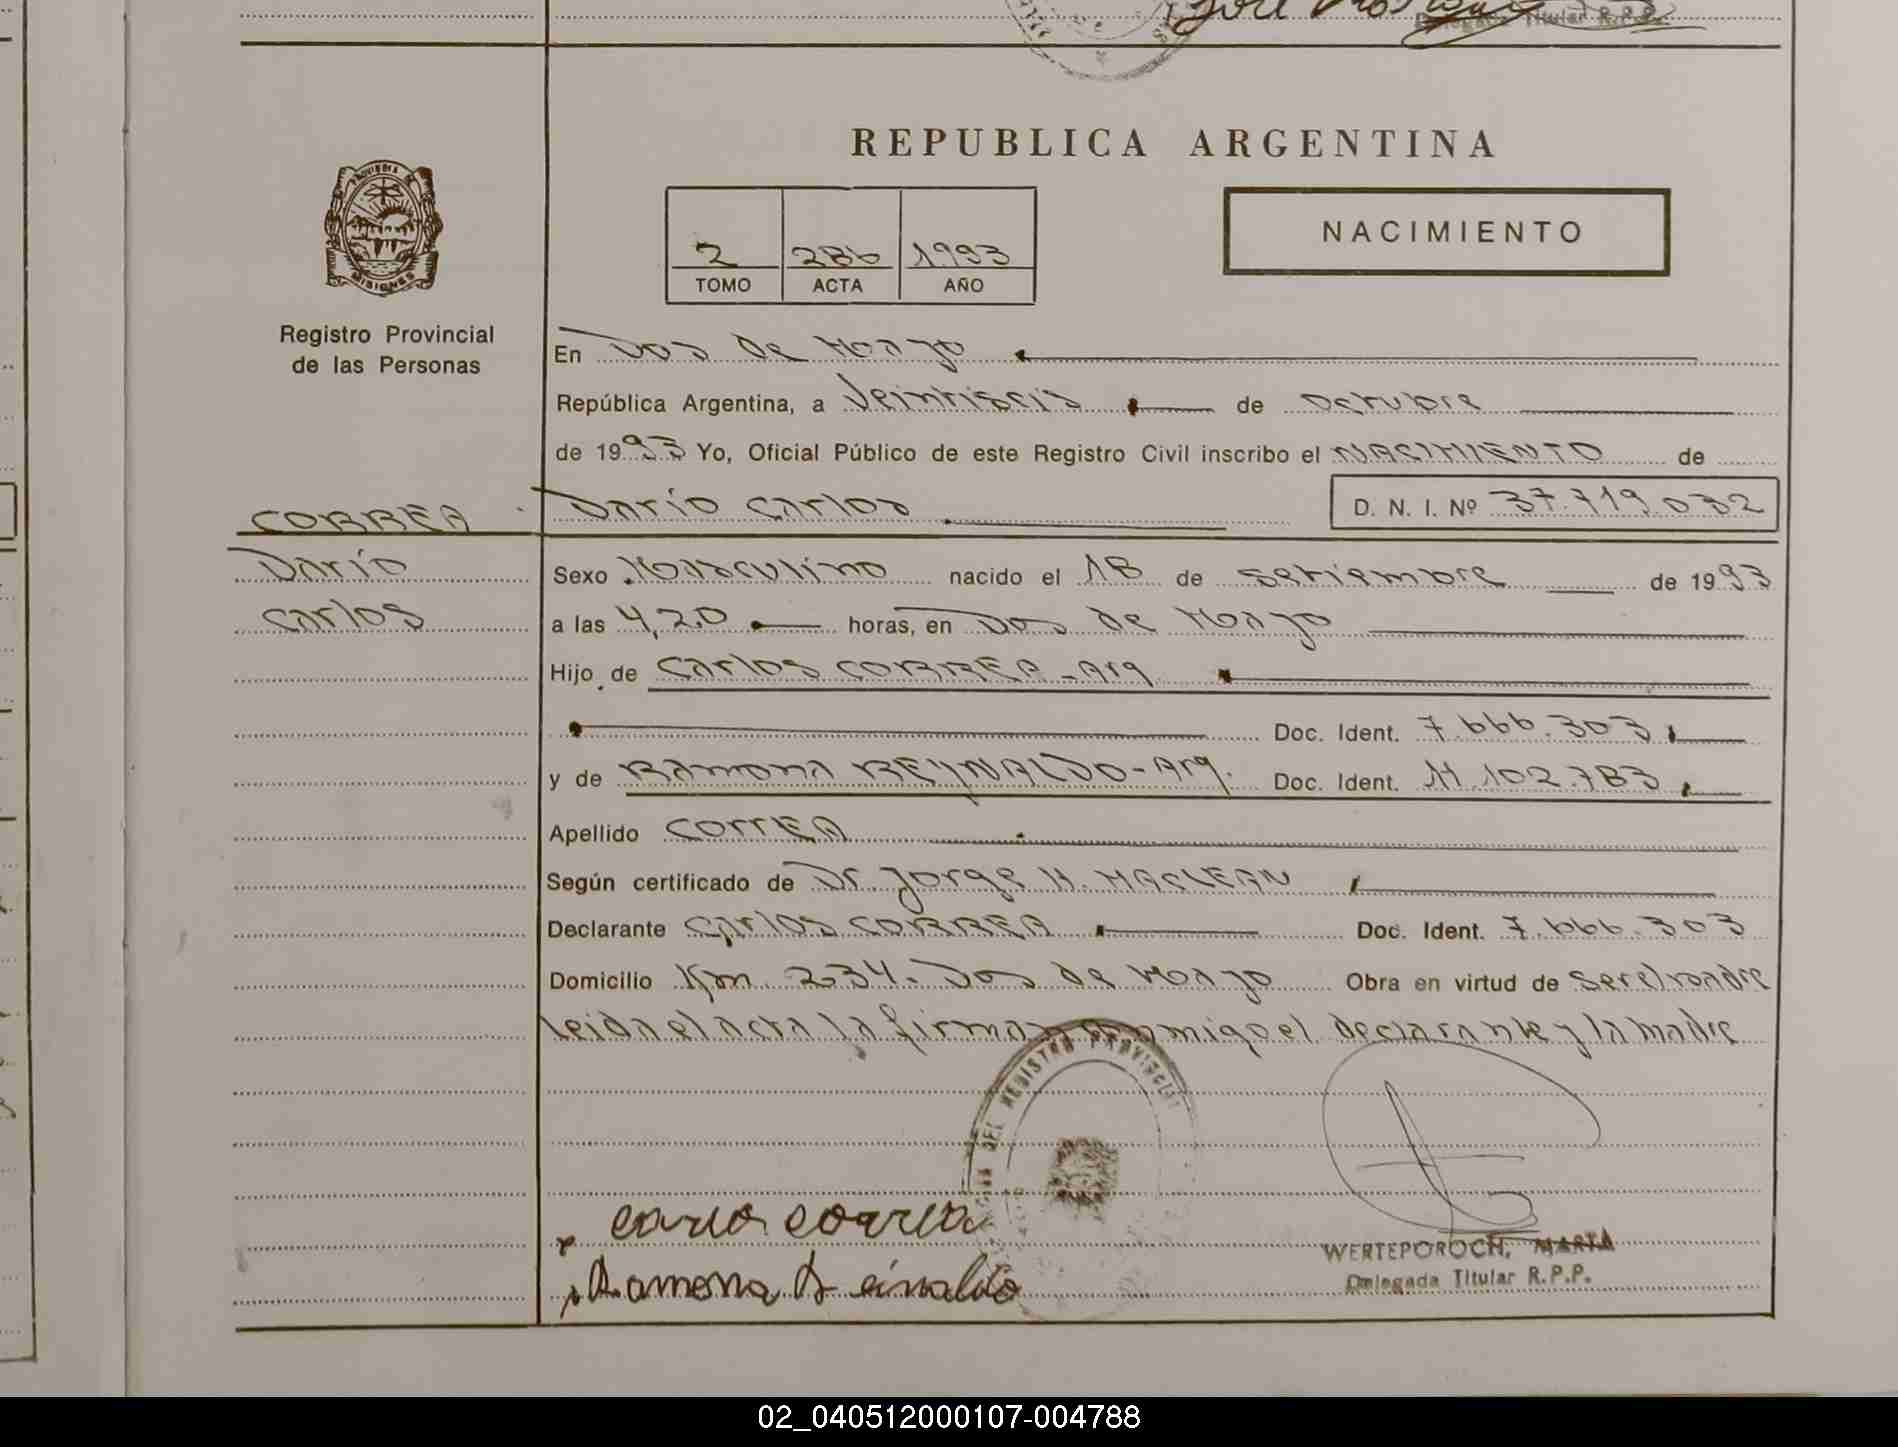 Delegada Titular R.P.P.
REPUBLICA ARGENTINA
NACIMIENTO
2 286 1993
TOMO ACTA AÑO
PROVINCIA DE
MISIONES
Registro Provincial
de las Personas
En Dos de Mayo
República Argentina, a Veintiseis de octubre
de 1993 Yo, Oficial Público de este Registro Civil inscribo el NACIMIENTO de
CORREA Darío Carlos D. N. I. Nº 37.719.032
Darío
Carlos
Sexo Masculino nacido el 18 de setiembre de 1993
a las 4,20 horas, en Dos de Mayo
Hijo de Carlos CORREA - Arg
Doc. Ident. 7.666.303
y de Ramona REYNALDO - Arg. Doc. Ident. 11.102.783
Apellido CorrEA
Según certificado de Dr. Jorge H. MACLEAN
Declarante Carlos CORREA Doc. Ident. 7.666.303
Domicilio Km. 234. Dos de Mayo Obra en virtud de ser el padre
leida el acta la firman conmigo el declarante y la madre
DEL REGISTRO PROVINCIAL
Carlo Correa
Ramona Reinaldo
WERTEPOROCH, MARTA
Delegada Titular R.P.P.
02_040512000107-004788